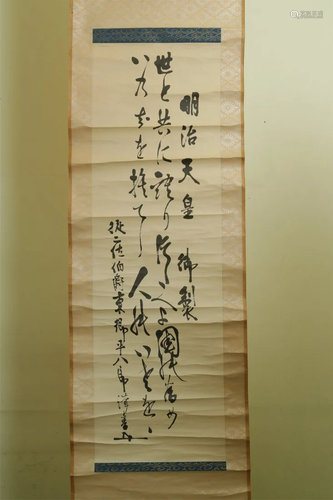 明治天皇 御製
世と共に語り傳へよ國の為め
いのちを捨てし人のいさをを
従二位伯爵東郷平八郎謹書